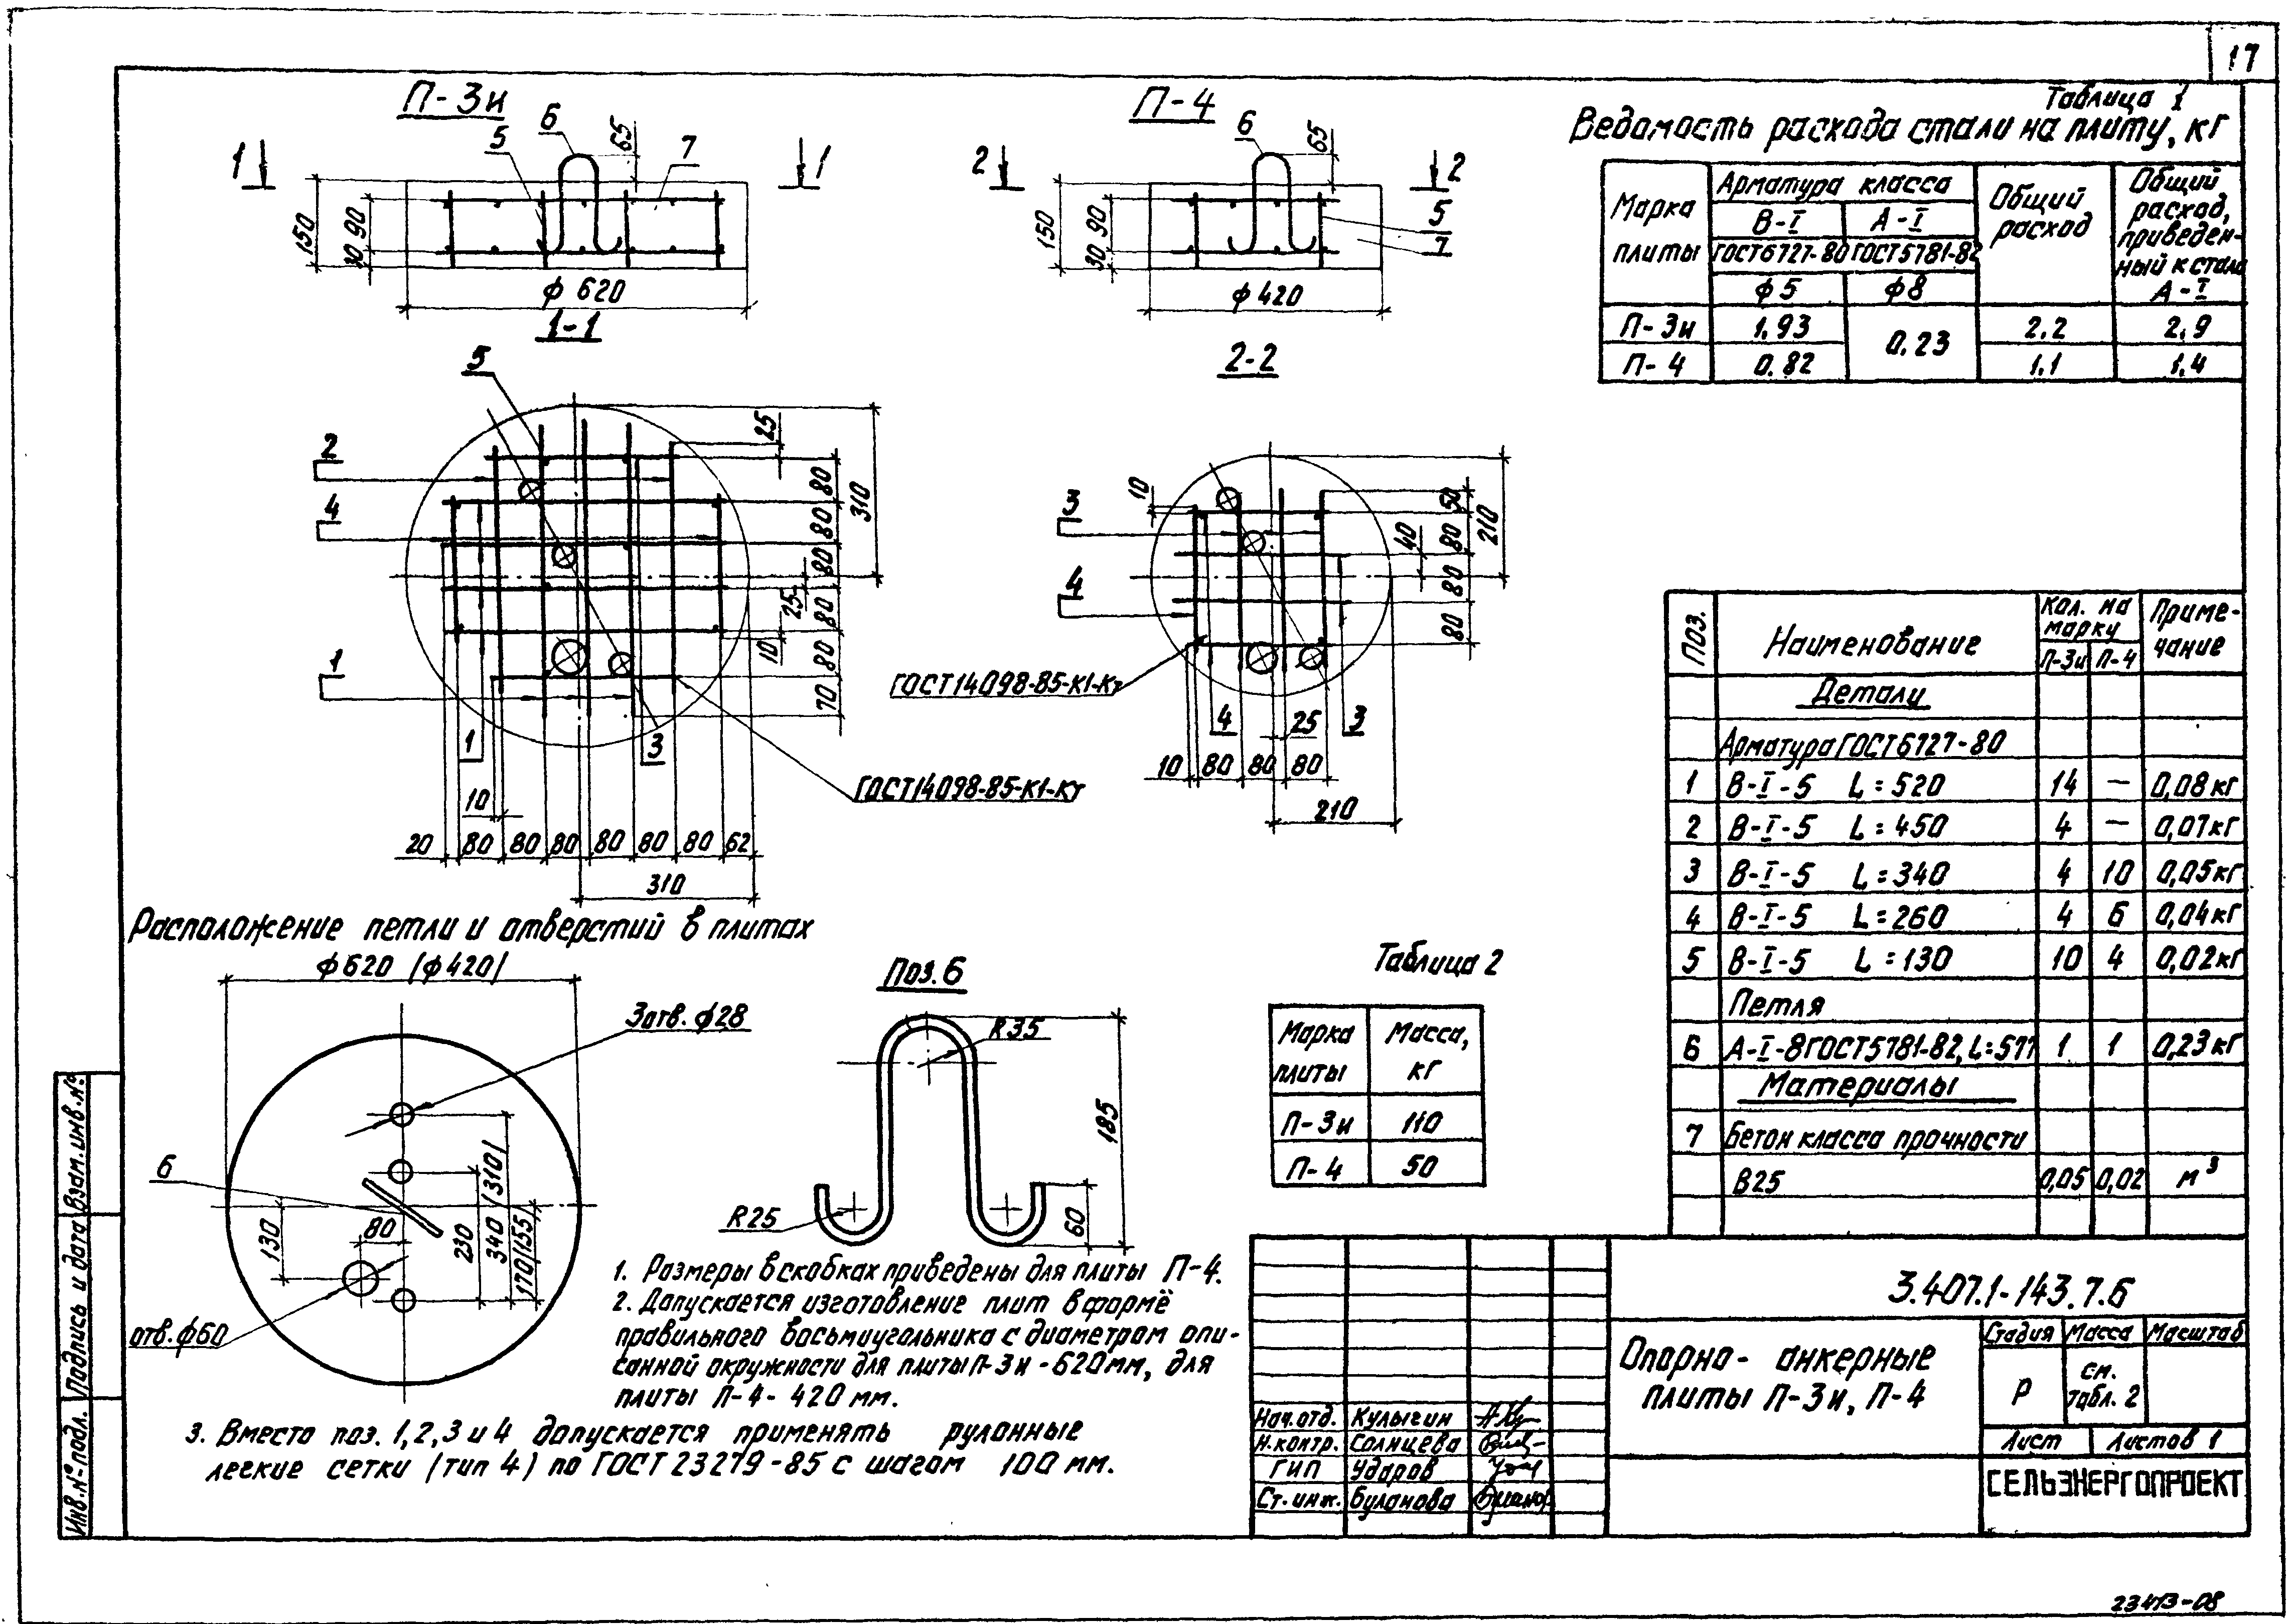 17
П-3и
П-4
Таблица 1
Ведомость расхода стали на плиту, кг
Марка плиты
Арматура класса
В-I
А-I
ГОСТ 6727-80
ГОСТ 5781-82
ф5
ф8
Общий расход
Общий расход, приведен-
ный к стали А-I
П-3и 1.93 0.23 2.2 2.9
П-4 0.82 1.1 1.4
1 1
5 6 7
65
150
30 90
ф 620
1-1
2 2
6
5
7
65
150
30 90
ф 420
2-2
5
2
4
1
1
3
25
80
80
80
80
80
70
310
25
10
ГОСТ14098-85-К1-Кт
10
20 80 80 80 80 80 80 62
310
10
3
4
50
80
80
80
40
210
ГОСТ14098-85-К1-Кт
4
25
3
10 80 80 80
210
Расположение петли и отверстий в плитах
ф620 /ф420/
3отв. ф28
6
130
80
230
340 /310/
170/155/
отв. ф60
Поз. 6
R35
R25
185
60
Таблица 2
Марка плиты
Масса, кг
П-3и 110
П-4 50
Поз.
Наименование
Кол. на марку
П-3и П-4
Приме-
чание
Детали
Арматура ГОСТ6727-80
1 В-I-5 L=520 14 — 0,08кг
2 В-I-5 L=450 4 — 0,07кг
3 В-I-5 L=340 4 10 0,05кг
4 В-I-5 L=260 4 6 0,04кг
5 В-I-5 L=130 10 4 0,02кг
Петля
6 А-I-8ГОСТ5781-82, L=577 1 1 0,23кг
Материалы
7 Бетон класса прочности
В25 0,05 0,02 м³
1. Размеры в скобках приведены для плиты П-4.
2. Допускается изготовление плит в форме
правильного восьмиугольника с диаметром опи-
санной окружности для плиты П-3и - 620мм, для
плиты П-4 - 420 мм.
3. Вместо поз. 1,2,3 и 4 допускается применять рулонные
легкие сетки (тип 4) по ГОСТ 23279-85 с шагом 100 мм.
3.407.1-143.7.6
Опорно-анкерные
плиты П-3и, П-4
Стадия Масса Масштаб
Р см. табл. 2
Лист Листов 1
СЕЛЬЭНЕРГОПРОЕКТ
Нач.отд. Кулыгин
Н.контр. Солнцева
ГИП Ударов
Ст.инж. Буланова
Инв.№подл. Подпись и дата Взам.инв.№
23413-08